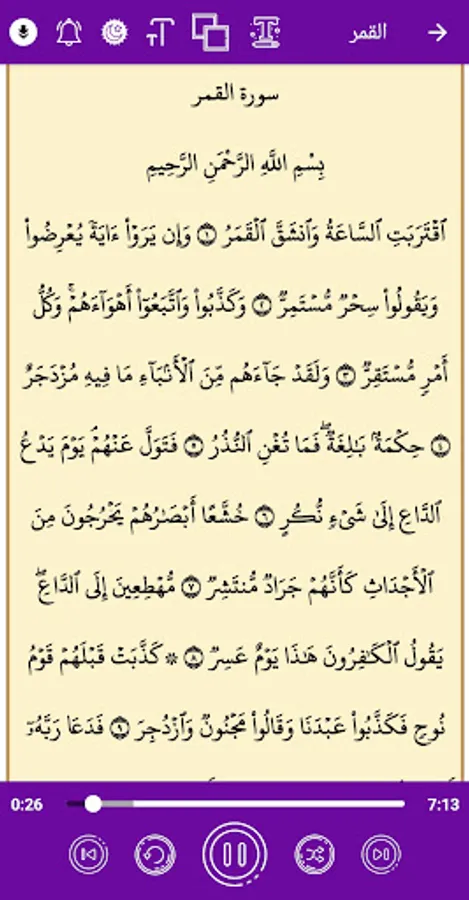 القمر
سورة القمر
بِسْمِ اللَّهِ الرَّحْمَٰنِ الرَّحِيمِ
ٱقْتَرَبَتِ ٱلسَّاعَةُ وَٱنشَقَّ ٱلْقَمَرُ ١ وَإِن يَرَوْا۟ ءَايَةً يُعْرِضُوا۟
وَيَقُولُوا۟ سِحْرٌ مُّسْتَمِرٌّ ٢ وَكَذَّبُوا۟ وَٱتَّبَعُوٓا۟ أَهْوَآءَهُمْ ۚ وَكُلُّ
أَمْرٍ مُّسْتَقِرٌّ ٣ وَلَقَدْ جَآءَهُم مِّنَ ٱلْأَنۢبَآءِ مَا فِيهِ مُزْدَجَرٌ
٤ حِكْمَةٌۢ بَـٰلِغَةٌ ۖ فَمَا تُغْنِ ٱلنُّذُرُ ٥ فَتَوَلَّ عَنْهُمْ ۘ يَوْمَ يَدْعُ
ٱلدَّاعِ إِلَىٰ شَىْءٍ نُّكُرٍ ٦ خُشَّعًا أَبْصَـٰرُهُمْ يَخْرُجُونَ مِنَ
ٱلْأَجْدَاثِ كَأَنَّهُمْ جَرَادٌ مُّنتَشِرٌ ٧ مُّهْطِعِينَ إِلَى ٱلدَّاعِ ۖ
يَقُولُ ٱلْكَـٰفِرُونَ هَـٰذَا يَوْمٌ عَسِرٌ ٨ ۞ كَذَّبَتْ قَبْلَهُمْ قَوْمُ
نُوحٍ فَكَذَّبُوا۟ عَبْدَنَا وَقَالُوا۟ مَجْنُونٌ وَٱزْدُجِرَ ٩ فَدَعَا رَبَّهُۥٓ
0:26 7:13